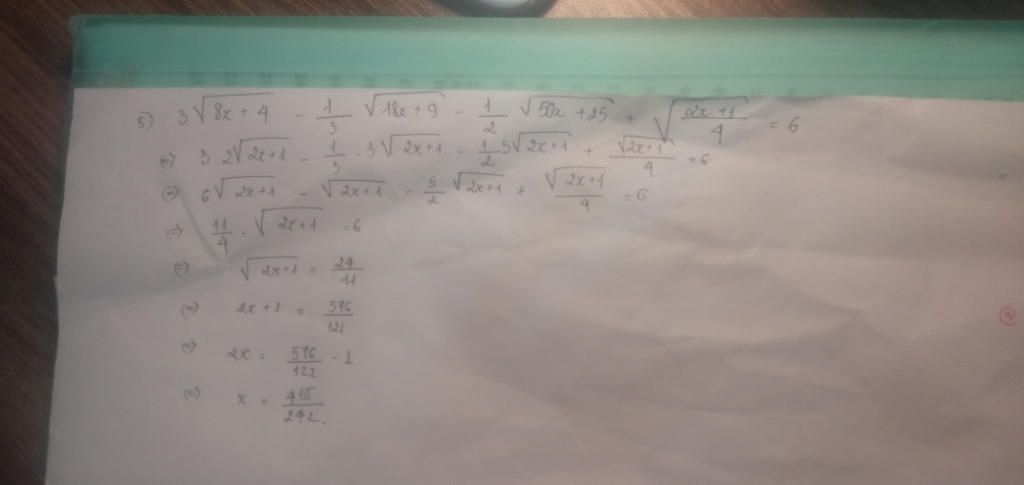 5) 3√(8x + 4) - 1/3 √(18x + 9) - 1/2 √(50x + 25) + √((2x + 1)/4) = 6
(=) 3.2√(2x+1) - 1/3 . 3√(2x+1) - 1/2 5√(2x+1) + √(2x+1)/4 = 6
(=) 6√(2x+1) - √(2x+1) - 5/2 √(2x+1) + √(2x+1)/4 = 6
(=) 11/4 . √(2x+1) = 6
(=) √(2x+1) = 24/11
(=) 2x + 1 = 576/121
(=) 2x = 576/122 - 1
(=) x = 455/242.